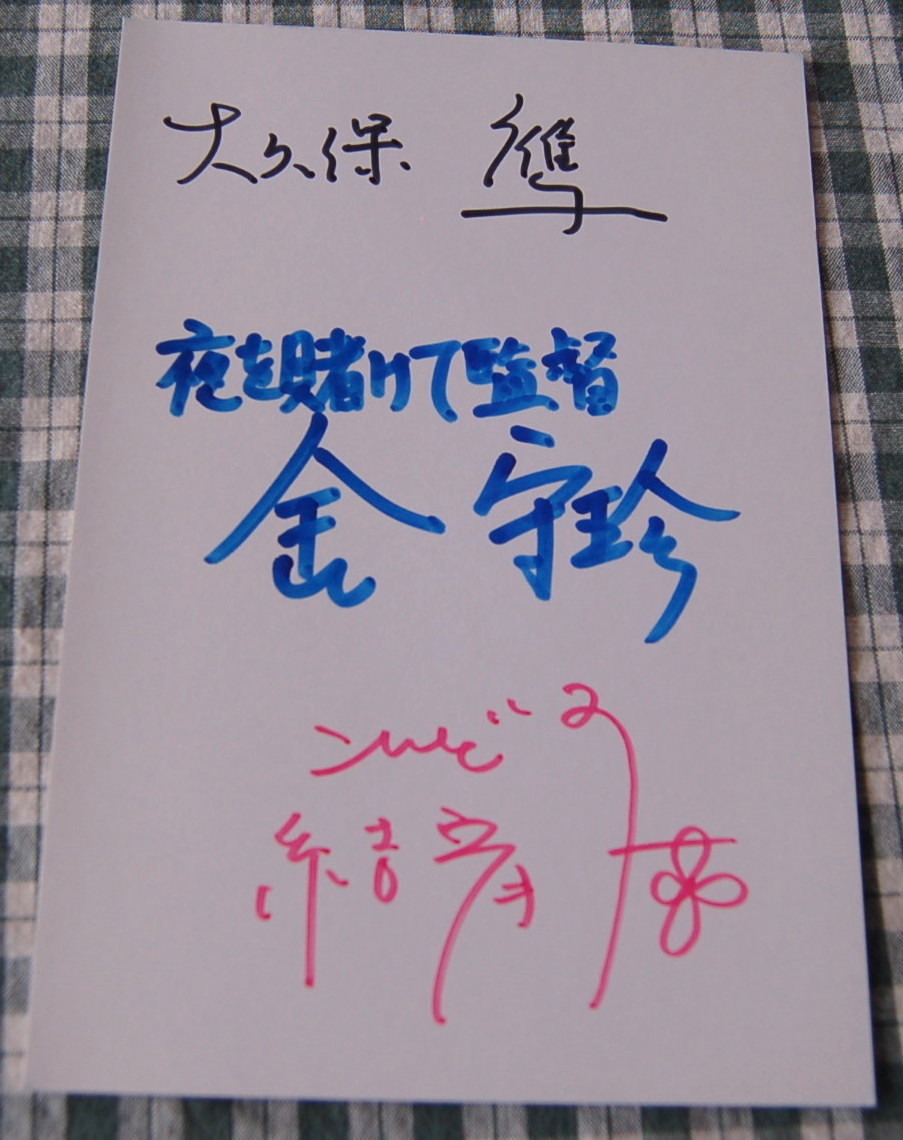 大久保 鷹
夜を賭けて監督
金 守珍
こんどう
結宥花